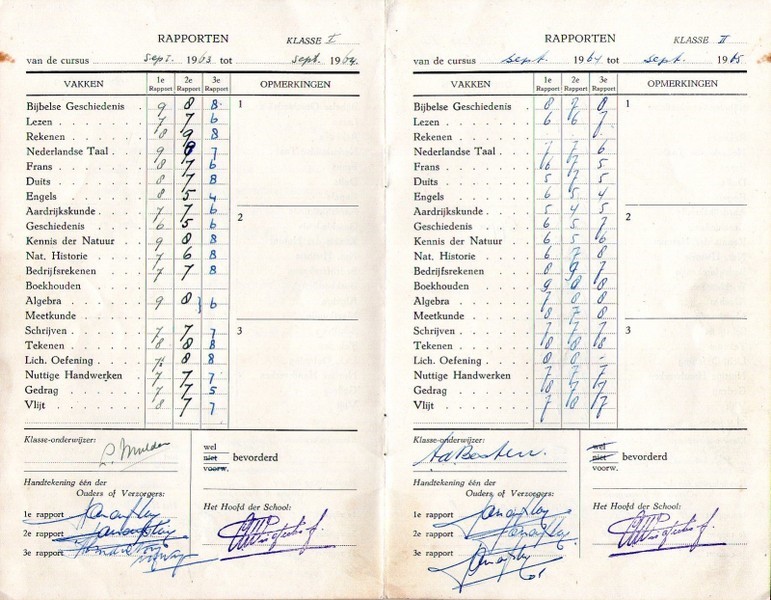 RAPPORTEN KLASSE I
van de cursus sept. 1963 tot sept. 1964
VAKKEN 1e Rapport 2e Rapport 3e Rapport OPMERKINGEN
Bijbelse Geschiedenis 9 8 8 1
Lezen 7 7 6
Rekenen 8 9 8
Nederlandse Taal 9 8 7
Frans 8 7 6
Duits 8 7 8
Engels 8 5 4
Aardrijkskunde 7 7 6
Geschiedenis 6 5 6 2
Kennis der Natuur 9 8 8
Nat. Historie 7 6 8
Bedrijfsrekenen 7 7 8
Boekhouden
Algebra 9 8 } 6
Meetkunde
Schrijven 7 7 7 3
Tekenen 8 8 8
Lich. Oefening 7½ 8 8
Nuttige Handwerken 7 7 7
Gedrag 7 7 5
Vlijt 8 7 7
Klasse-onderwijzer:
L. Mulder
wel
niet bevorderd
voorw.
Handtekening één der
Ouders of Verzorgers:
Het Hoofd der School:
1e rapport
2e rapport
3e rapport
RAPPORTEN KLASSE II
van de cursus sept. 1964 tot sept. 1965
VAKKEN 1e Rapport 2e Rapport 3e Rapport OPMERKINGEN
Bijbelse Geschiedenis 8 7 8 1
Lezen 6 6 7
Rekenen
Nederlandse Taal 7 7 6
Frans 6 7 5
Duits 5 7 5
Engels 6 5 4
Aardrijkskunde 5 4 5
Geschiedenis 6 5 7 2
Kennis der Natuur 6 5 6
Nat. Historie 6 7 8
Bedrijfsrekenen 8 9 7
Boekhouden 9 8 8
Algebra 7 8 8
Meetkunde 8 7 8
Schrijven 7 7 7 3
Tekenen 8 8 8
Lich. Oefening 8 8 -
Nuttige Handwerken 7 7 7
Gedrag 8 7 7
Vlijt 7 8 7
Klasse-onderwijzer:
wel
niet bevorderd
voorw.
Handtekening één der
Ouders of Verzorgers:
Het Hoofd der School:
1e rapport
2e rapport
3e rapport